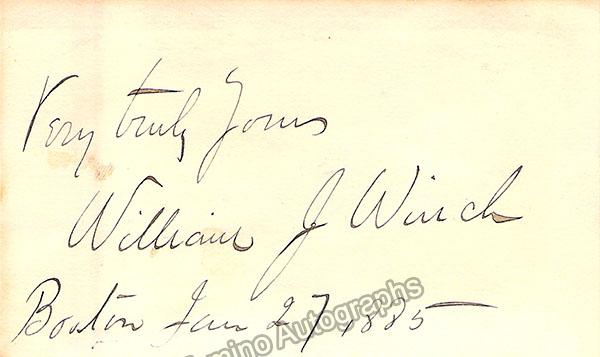 Very truly Yours
William J Winch
Boston Jan 27 1885
Tamino Autographs